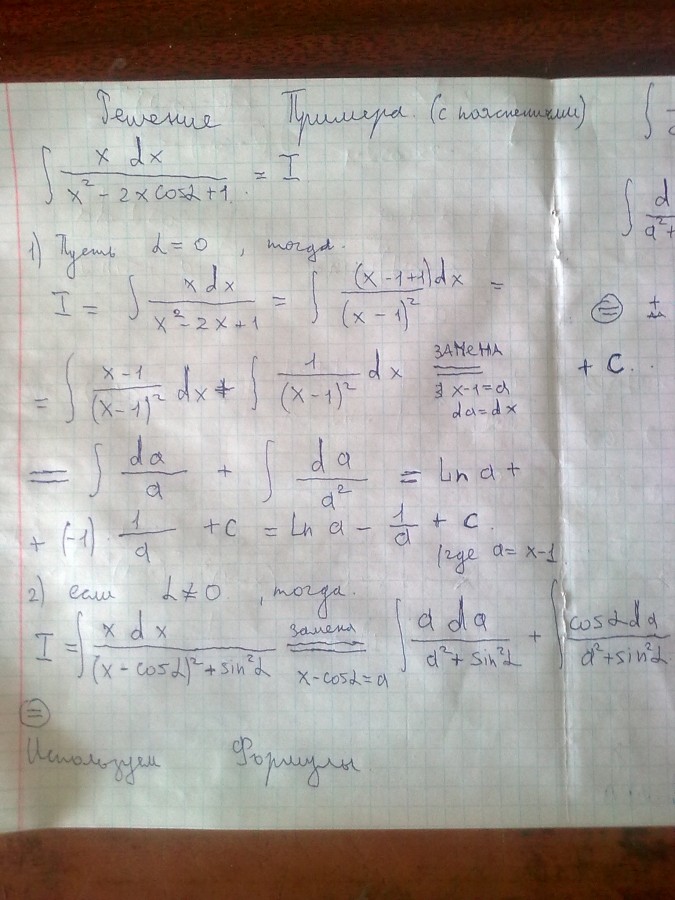 Решение Примера. (с пояснениями)
∫ x dx / (x² - 2x cosα + 1) = I
1) Пусть α = 0, тогда.
I = ∫ x dx / (x² - 2x + 1) = ∫ (x - 1 + 1) dx / (x - 1)² =
= ∫ (x - 1) / (x - 1)² dx + ∫ 1 / (x - 1)² dx ЗАМЕНА x - 1 = a da = dx
= ∫ da / a + ∫ da / a² = Ln a +
+ (-1) · 1 / a + c = Ln a - 1 / a + c.
(где a = x - 1
2) если α ≠ 0, тогда.
I = ∫ x dx / ((x - cosα)² + sin²α) замена x - cosα = a ∫ a da / (a² + sin²α) + ∫ cosα da / (a² + sin²α)
=
Используем Формулы
∫
∫ d / a² +
=
+ C.